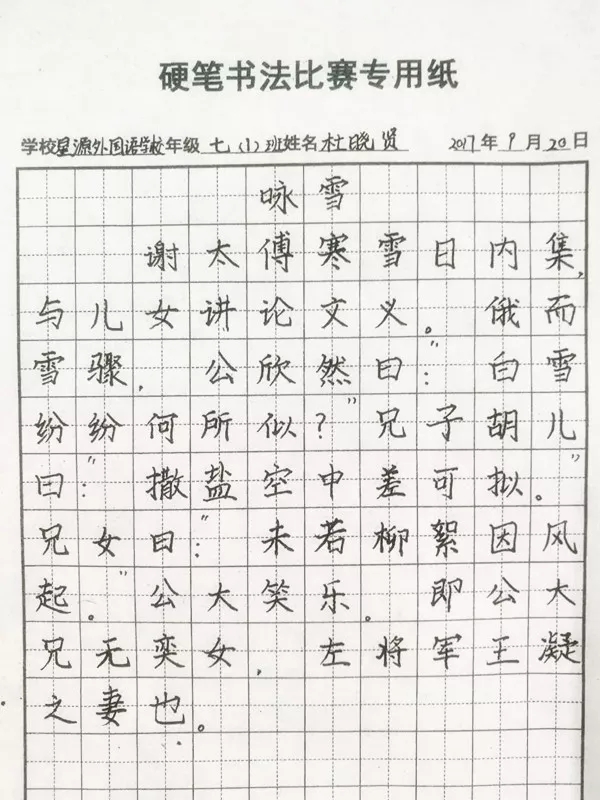 硬笔书法比赛专用纸
学校星源外国语学校年级七(1)班姓名杜晓贤 2017年9月20日
咏雪
谢太傅寒雪日内集,
与儿女讲论文义。俄而
雪骤,公欣然曰:“白雪
纷纷何所似?”兄子胡儿
曰:“撒盐空中差可拟。”
兄女曰:“未若柳絮因风
起。”公大笑乐。即公大
兄无奕女,左将军王凝
之妻也。